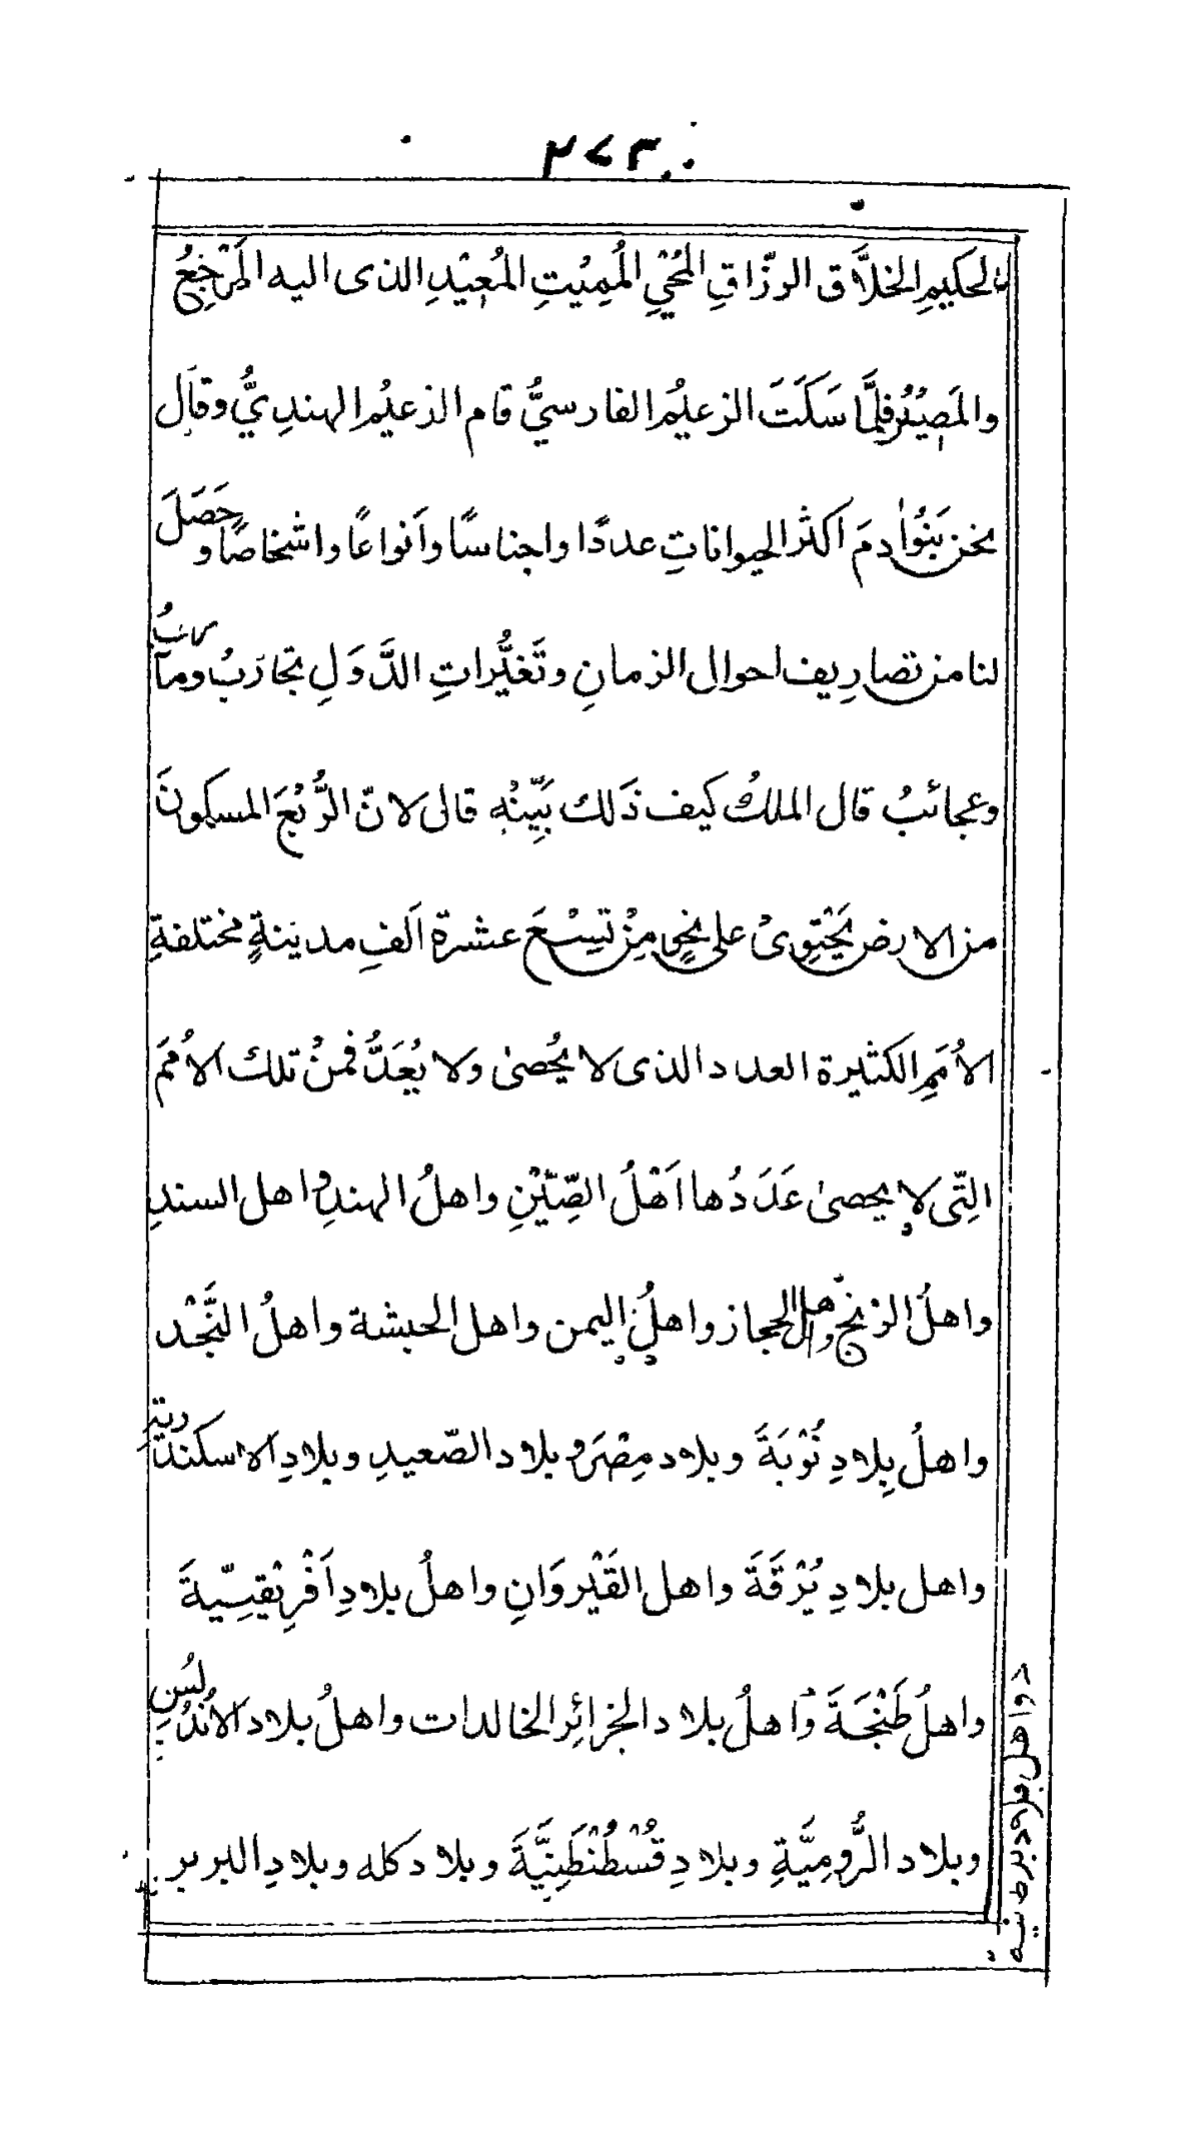 ٢٧٣
الحكيمِ الخلَّاق الرزّاقِ المُحْيِ المُمِيْتِ المُعِيْدِ الذى اليه المَرْجِعُ
والمَصِيْرُ فلمَّا سَكَتَ الزعيمُ الفارسيُّ قام الزعيمُ الهنديُّ وقال
نحن بَنُوْاٰدمَ اَكثر الحيواناتِ عددًا واجناسًا واَنواعًا واشخاصًا وحَصَلَ
لنا من تصارِيف احوال الزمانِ وتَغيُّراتِ الدَّوَلِ تجارَبُ ومآربُ
وعجائبُ قال الملكُ كيف ذَلك بَيِّنْهُ قال لانّ الرُّبْعَ المسكونَ
من الارض يَحْتِوِىْ على نحوٍ مِنْ تِسْعَ عشرة اَلفِ مدينةٍ مختلفةِ
الاُمَمِ الكثيرة العدد الذى لا يُحْصىٰ ولا يُعَدُّ فمنْ تلك الاُممَ
التِّى لا يحصىٰ عَدَدُها اَهْلُ الصِّيْنِ واهلُ الهندِ واهل السندِ
واهلُ الزنج واهل الحجاز واهلُ اليمن واهل الحبشة واهلُ النَّجْد
واهلُ بِلادِ نُوْبَةَ وبلاد مِصْرَ وبلاد الصّعيدِ وبلادِ الاسكندريّةِ
واهل بلادِ بُرْقَةَ واهل القَيْروَانِ واهلُ بلادِ اَفْرِيْقِسِيّةَ
واهلُ طَنْجَةَ وَاهلُ بلاد الجزائِر الخالدات واهلُ بلاد الاُنْدُلسِ
وبلاد الرُّومِيَّةِ وبلادِ قُسْطُنْطَنِيَّةَ وبلاد كله وبلادِ البربر
واهل بلاد برطنية